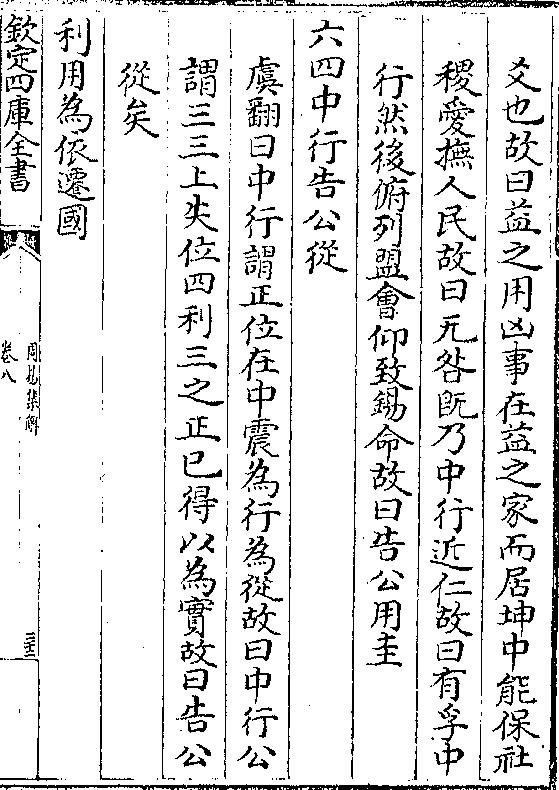 爻也故曰益之用凶事在益之家而居坤中能保社
稷愛撫人民故曰无咎既乃中行近仁故曰有孚中
行然後俯列盟會仰致錫命故曰告公用圭
六四中行告公從
虞翻曰中行謂正位在中震為行為從故曰中行公
謂三三上失位四利三之正已得以為實故曰告公
從矣
利用為依遷國
欽定四庫全書
周易集解
卷八
三十三